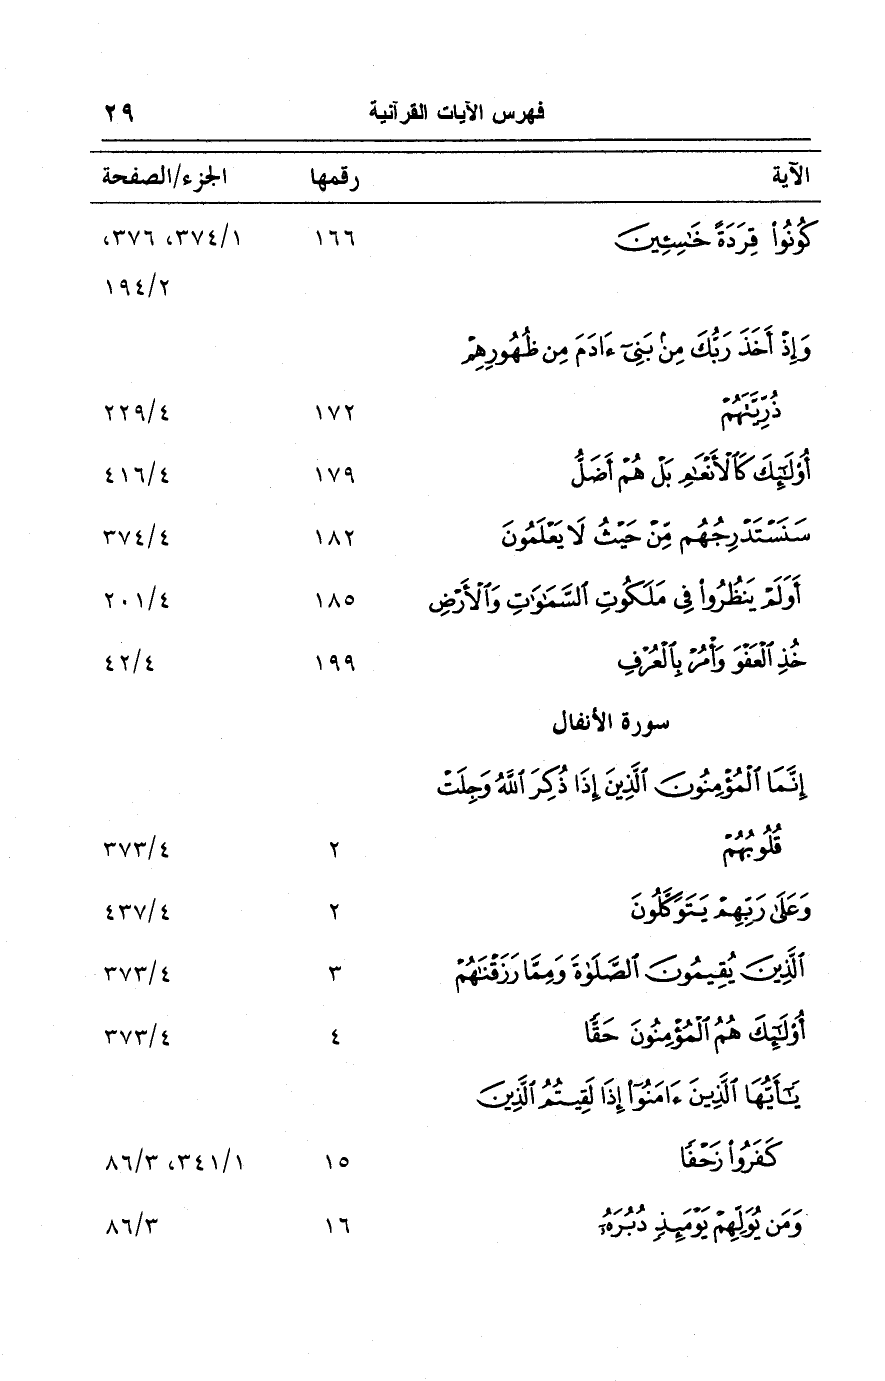 فهرس الآيات القرآنية ٢٩
الآية رقمها الجزء/الصفحة
كُونُوا۟ قِرَدَةً خَٰسِـِٔينَ ١٦٦ ٣٧٤/١، ٣٧٦،
١٩٤/٢
وَإِذْ أَخَذَ رَبُّكَ مِنۢ بَنِىٓ ءَادَمَ مِن ظُهُورِهِمْ
ذُرِّيَّتَهُمْ ١٧٢ ٢٢٩/٤
أُو۟لَٰٓئِكَ كَٱلْأَنْعَٰمِ بَلْ هُمْ أَضَلُّ ١٧٩ ٤١٦/٤
سَنَسْتَدْرِجُهُم مِّنْ حَيْثُ لَا يَعْلَمُونَ ١٨٢ ٣٧٤/٤
أَوَلَمْ يَنظُرُوا۟ فِى مَلَكُوتِ ٱلسَّمَٰوَٰتِ وَٱلْأَرْضِ ١٨٥ ٢٠١/٤
خُذِ ٱلْعَفْوَ وَأْمُرْ بِٱلْعُرْفِ ١٩٩ ٤٢/٤
سورة الأنفال
إِنَّمَا ٱلْمُؤْمِنُونَ ٱلَّذِينَ إِذَا ذُكِرَ ٱللَّهُ وَجِلَتْ
قُلُوبُهُمْ ٢ ٣٧٣/٤
وَعَلَىٰ رَبِّهِمْ يَتَوَكَّلُونَ ٢ ٤٣٧/٤
ٱلَّذِينَ يُقِيمُونَ ٱلصَّلَوٰةَ وَمِمَّا رَزَقْنَٰهُمْ ٣ ٣٧٣/٤
أُو۟لَٰٓئِكَ هُمُ ٱلْمُؤْمِنُونَ حَقًّا ٤ ٣٧٣/٤
يَٰٓأَيُّهَا ٱلَّذِينَ ءَامَنُوٓا۟ إِذَا لَقِيتُمُ ٱلَّذِينَ
كَفَرُوا۟ زَحْفًا ١٥ ٣٤١/١، ٨٦/٣
وَمَن يُوَلِّهِمْ يَوْمَئِذٍ دُبُرَهُۥٓ ١٦ ٨٦/٣